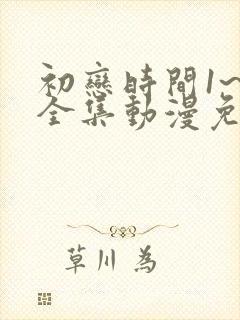 初戀時間1~
全集動漫免
草川 為